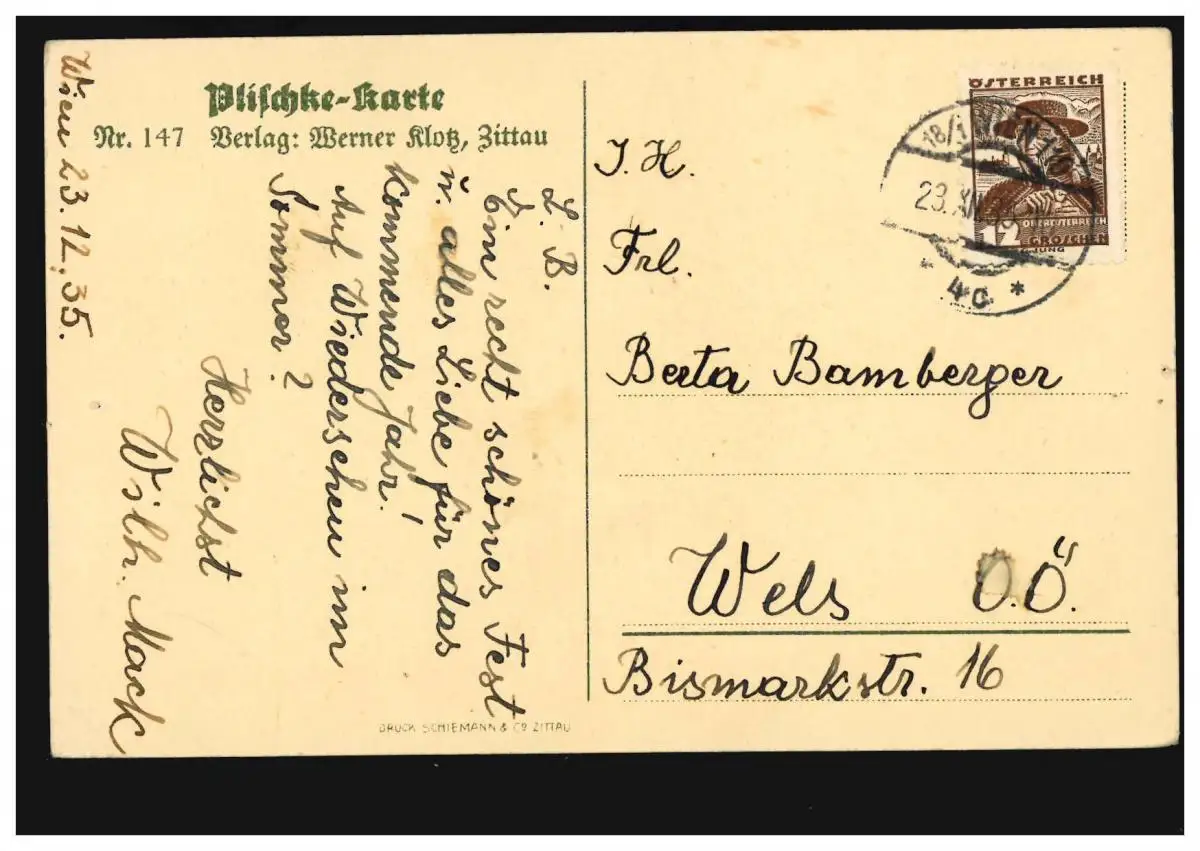 Plischke-Karte
Nr. 147 Verlag: Werner Klotz, Zittau
Wien 23.12.35.
L. B.
Ein recht schönes Fest
u. alles Liebe für das
kommende Jahr!
Auf Wiedersehen im
Sommer?
Herzlichst
Wilh. Mack
DRUCK SCHIEMANN & Co ZITTAU
ÖSTERREICH
12 OBERÖSTERREICH
GROSCHEN
JUNG
23.XII
4c *
I. H.
Frl.
Berta Bamberger
Wels O.Ö.
Bismarkstr. 16